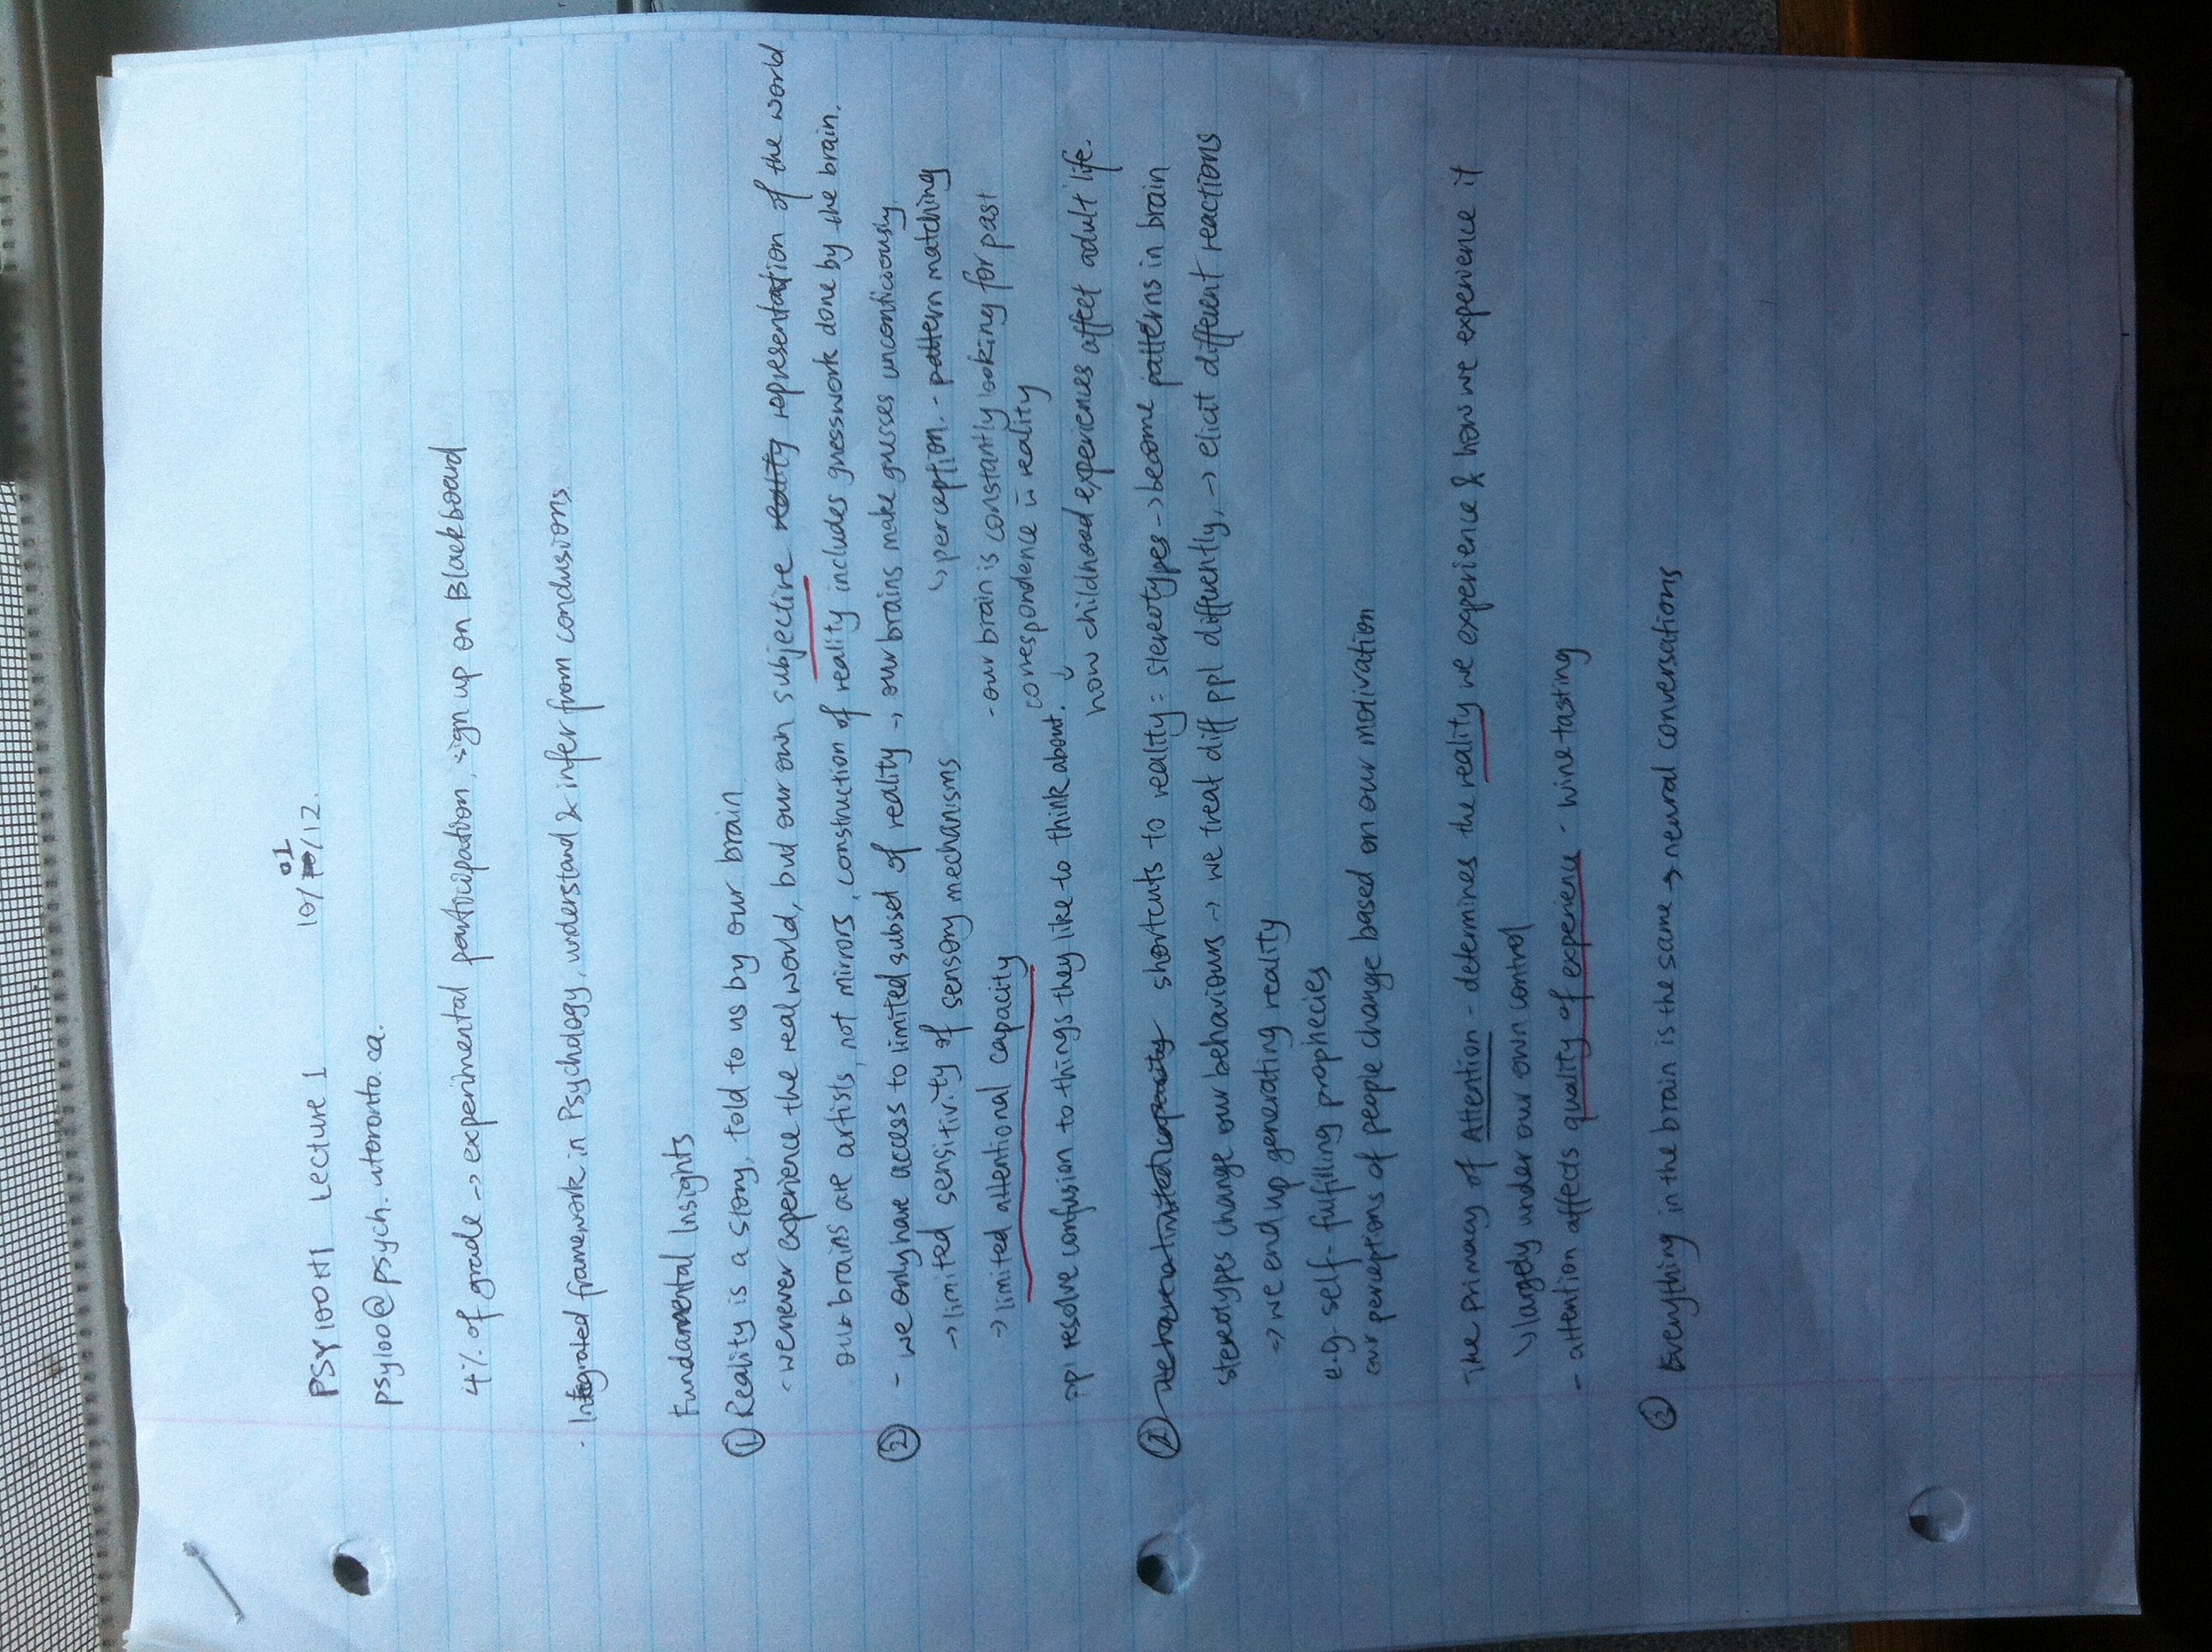 PSY100H1 Lecture 1 10/01/12.
psy100@psych.utoronto.ca.
4% of grade → experimental participation, sign up on Blackboard
· Integrated framework in Psychology, understand & infer from conclusions
Fundamental Insights
① Reality is a story, told to us by our brain
- we never experience the real world, but our own subjective reality representation of the world
our brains are artists, not mirrors, construction of reality includes guesswork done by the brain.
② - we only have access to limited subset of reality → our brains make guesses unconsciously
→ limited sensitivity of sensory mechanisms
↳ perception. - pattern matching
→ limited attentional capacity
- our brain is constantly looking for past
correspondence in reality
ppl resolve confusion to things they like to think about.
↓
how childhood experiences affect adult life.
② shortcuts to reality: stereotypes → become patterns in brain
stereotypes change our behaviours → we treat diff ppl differently, → elicit different reactions
→ we end up generating reality
e.g. self-fulfilling prophecies
our perceptions of people change based on our motivation
The Primacy of Attention - determines the reality we experience & how we experience it
↳ largely under our own control
- attention affects quality of experience - wine tasting
③ Everything in the brain is the same → neural conversations